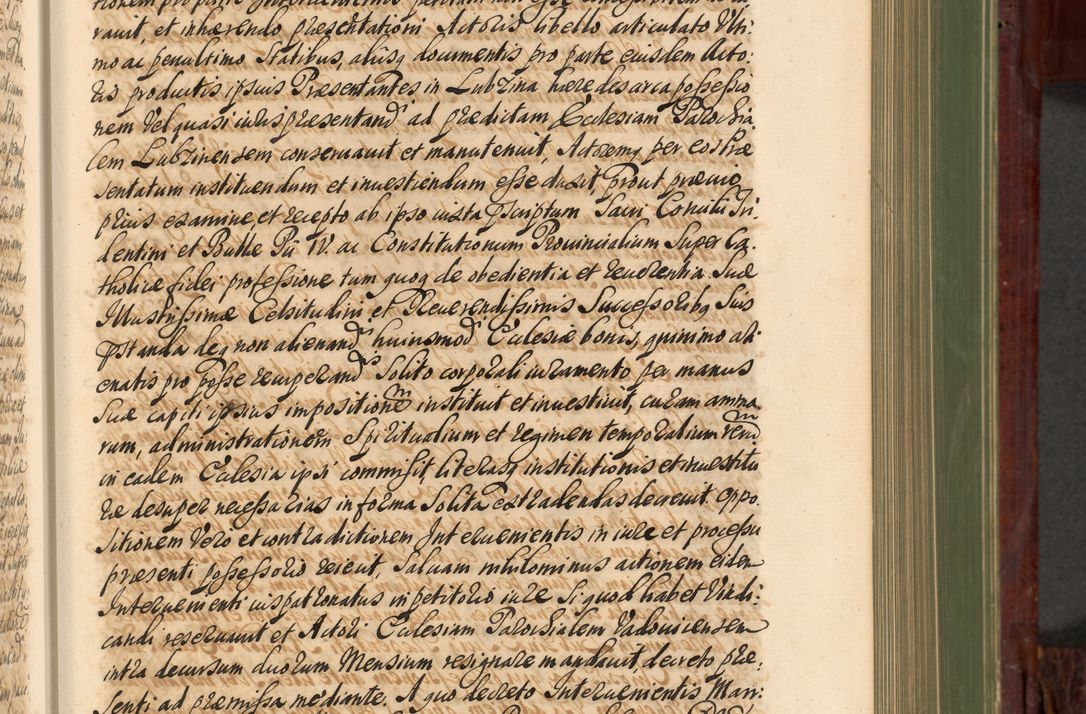 rauit, et inhærendo præsentationi Actoris libello articulato Ulti:
mo ac penultimo Statibus, alijsq documentis pro parte eiusdem Acto:
ris productis ipsius Præsentantes in Lubzina hæredes circa possessio
nem Vel quasi iuris præsentand ad prædictam Ecclesiam Parochia
lem Lubzinensem conseruauit et manutenuit, Actoremq per eos Præ
sentatum instituendum et inuestiendum esse duxit, prout præmio
prius examine, et recepto ab ipso iuxta præscriptum Sacri Concilii Tri
dentini et Bullæ Pii IV. ac Constitutionum Prouincialium Super Ca
tholicæ fidei professione tum quoq de obedientia et reuerentia Suæ
Illustrissimæ Celsitudini et Reuerendissimis Successoribq Suis
præstanda deq non alienand huiusmod Ecclesiæ bonis, quinimo ali
enatis pro posse recuperand Solito corporali iuramento per manus
Suæ capiti ipsius impositionem instituit et inuestiuit, curam anima
rum, administrationem Spiritualium et regimen temporalium
in eadem Ecclesia ipsi commisit, literasq institutionis et inuestitu
ræ desuper necessarias in forma Solita extradendas decreuit. Oppo
Sitionem Vero et contradictionem Interuenientis in iure et processu
præsenti possessorio reiecit, Saluam nihilominus actionem eidem
Interuenienti iuspatronatus in petitorio iure Si quod habet Vindi:
candi reseruauit et Actori Ecclesiam Parochialem Vadouicensem
intra decursum duorum Mensium resignare mandauit, decreto præ,
senti ad præmissa mediante. A quo decreto Interuenientis Man: